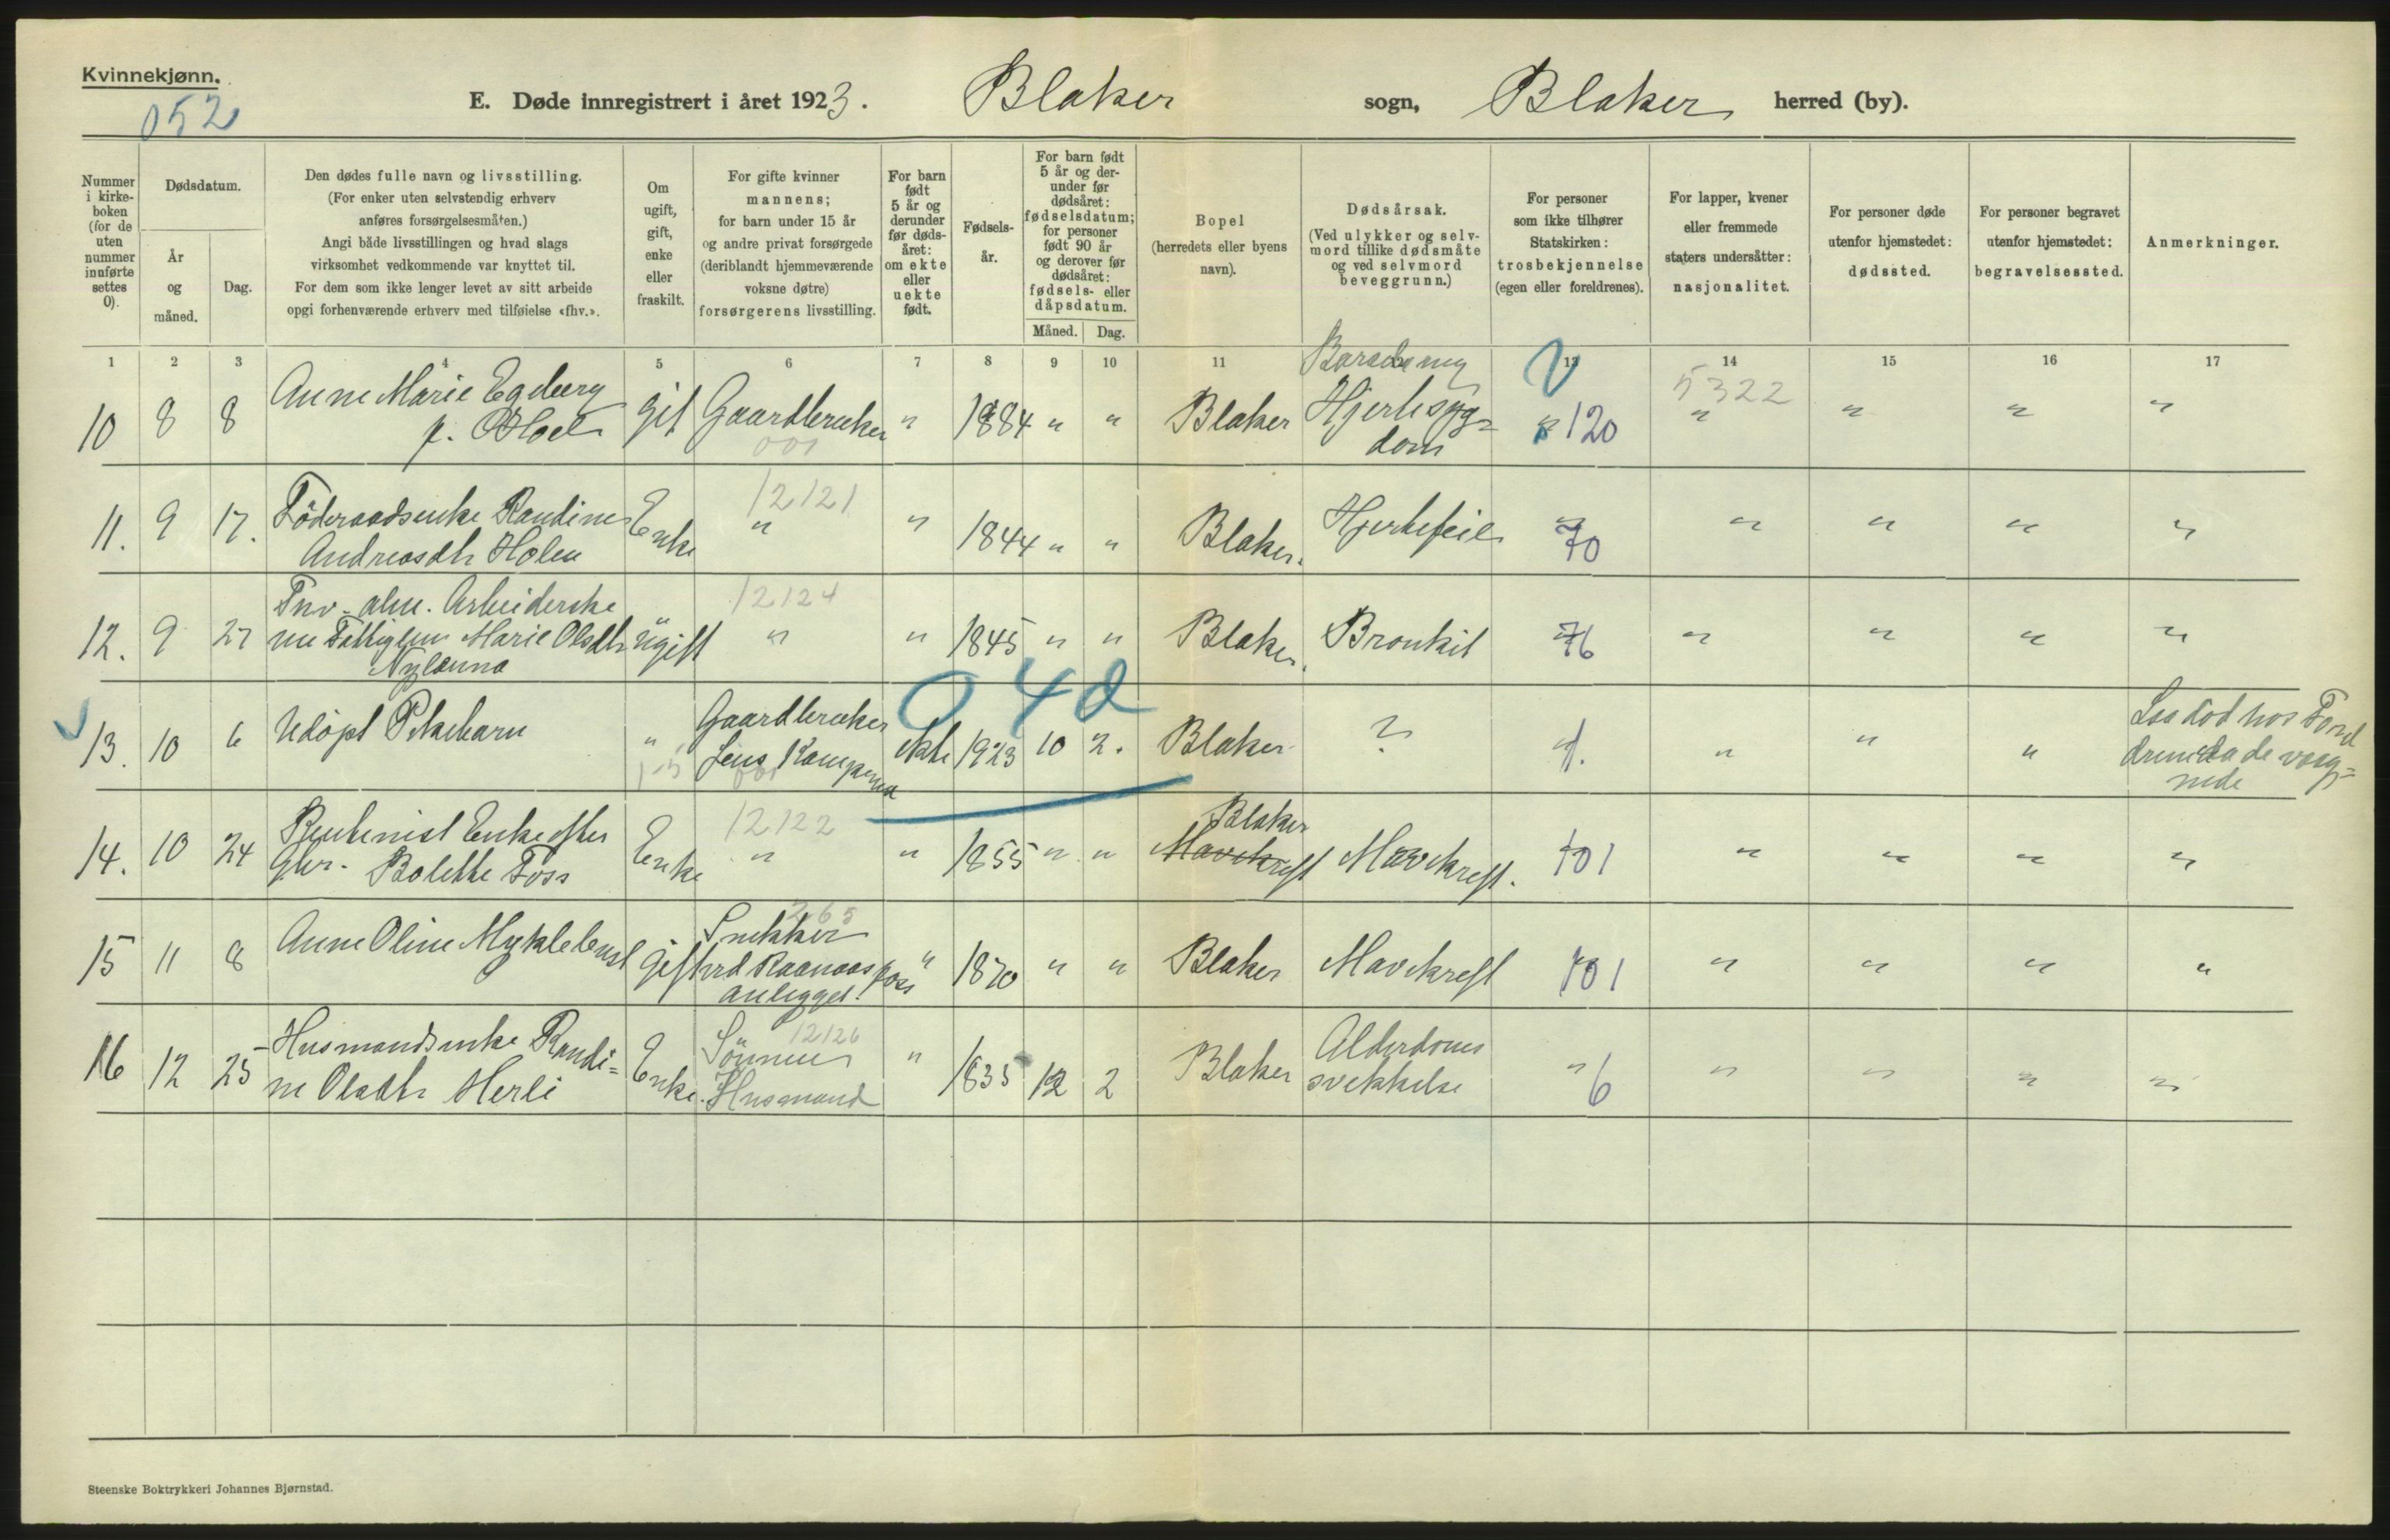 Kvinnekjønn.
052
E. Døde innregistrert i året 1923. Blaker sogn, Blaker herred (by).
Nummer i kirkeboken (for de uten nummer innførte settes 0).
Dødsdatum.
År og måned.
Dag.
Den dødes fulle navn og livsstilling.
(For enker uten selvstendig erhverv
anføres forsørgelsesmåten.)
Angi både livsstillingen og hvad slags
virksomhet vedkommende var knyttet til.
For dem som ikke lenger levet av sitt arbeide
opgi forhenværende erhverv med tilføielse «fhv.».
Om ugift, gift, enke eller fraskilt.
For gifte kvinner
mannens;
for barn under 15 år
og andre privat forsørgede
(deriblandt hjemmeværende
voksne døtre)
forsørgerens livsstilling.
For barn født 5 år og derunder før dødsåret: om ekte eller uekte født.
Fødselsår.
For barn født 5 år og derunder før dødsåret: fødselsdatum; for personer født 90 år og derover før dødsåret: fødsels- eller dåpsdatum.
Måned. Dag.
Bopel
(herredets eller byens
navn).
Dødsårsak.
(Ved ulykker og selvmord tillike dødsmåte og ved selvmord beveggrunn.)
For personer
som ikke tilhører
Statskirken:
trosbekjennelse
(egen eller foreldrenes).
For lapper, kvener
eller fremmede
staters undersåtter:
nasjonalitet.
For personer døde
utenfor hjemstedet:
dødssted.
For personer begravet
utenfor hjemstedet:
begravelsessted.
Anmerkninger.
1 2 3 4 5 6 7 8 9 10 11 12 13 14 15 16 17
10 8 8 Anne Marie Egeberg f. Hoel gif Gaardbruker 001 " 1884 " " Blaker Hjertesygdom " 120 5322 " " " "
11. 9 17. Föderaadsenke Randine Andreasdtr Holen Enke 12121 " " 1844 " " Blaker. Hjertefeil " 70 " " " "
12. 9 27 Marie Olsdtr ugift 12124 " " 1845 " " Blaker. Bronkit " 76 " " " "
042
13. 10 6 Udöpt Pikebarn " 1-5 Gaardbruker Jens 001 ekte 1923 10 2. Blaker ? 1. " " "
14. 10 24 Enke efter Gbr. Bolette Foss Enke 12122 " " 1855 " " Blaker Mavekreft Mavekreft. 101 " " " "
15 11 8 Anne Oline Myklebust gift 265 Snekker ved Raanaasfoss anlegget. " 1870 " " Blaker Mavekreft 101 " " " "
16 12 25 Husmandsenke Randine Olsdtr Herli Enke. 12126 Sönnen Husmand " 1835 12 2 Blaker Alderdoms svekkelse " 6 " " " "
Steenske Boktrykkeri Johannes Bjørnstad.